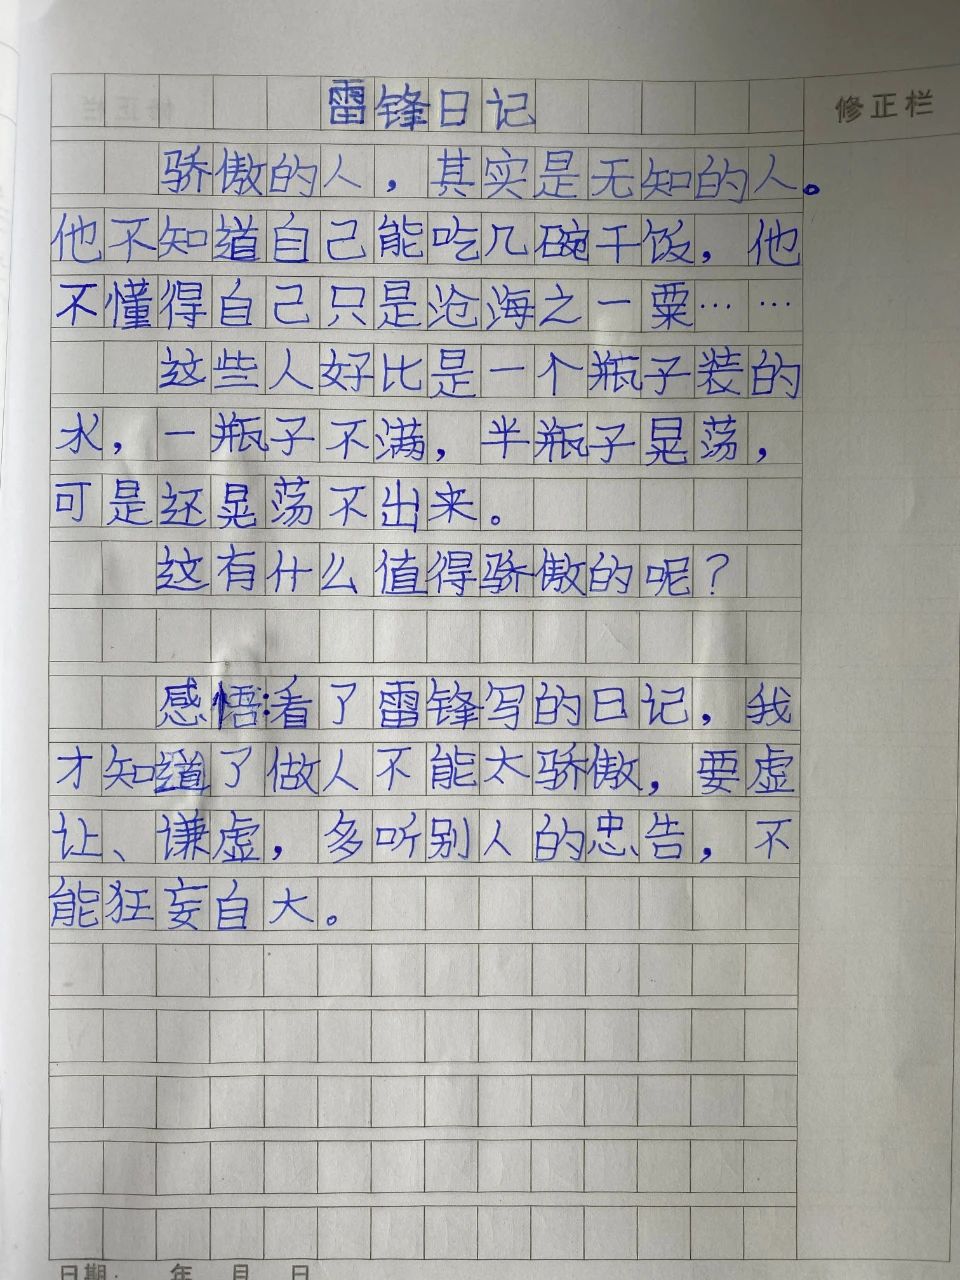 雷锋日记
修正栏
骄傲的人，其实是无知的人。
他不知道自己能吃几碗干饭，他
不懂得自己只是沧海之一粟……
这些人好比是一个瓶子装的
水，一瓶子不满，半瓶子晃荡，
可是还晃荡不出来。
这有什么值得骄傲的呢？
感悟：看了雷锋写的日记，我
才知道了做人不能太骄傲，要虚
让、谦虚，多听别人的忠告，不
能狂妄自大。
日期： 年 月 日